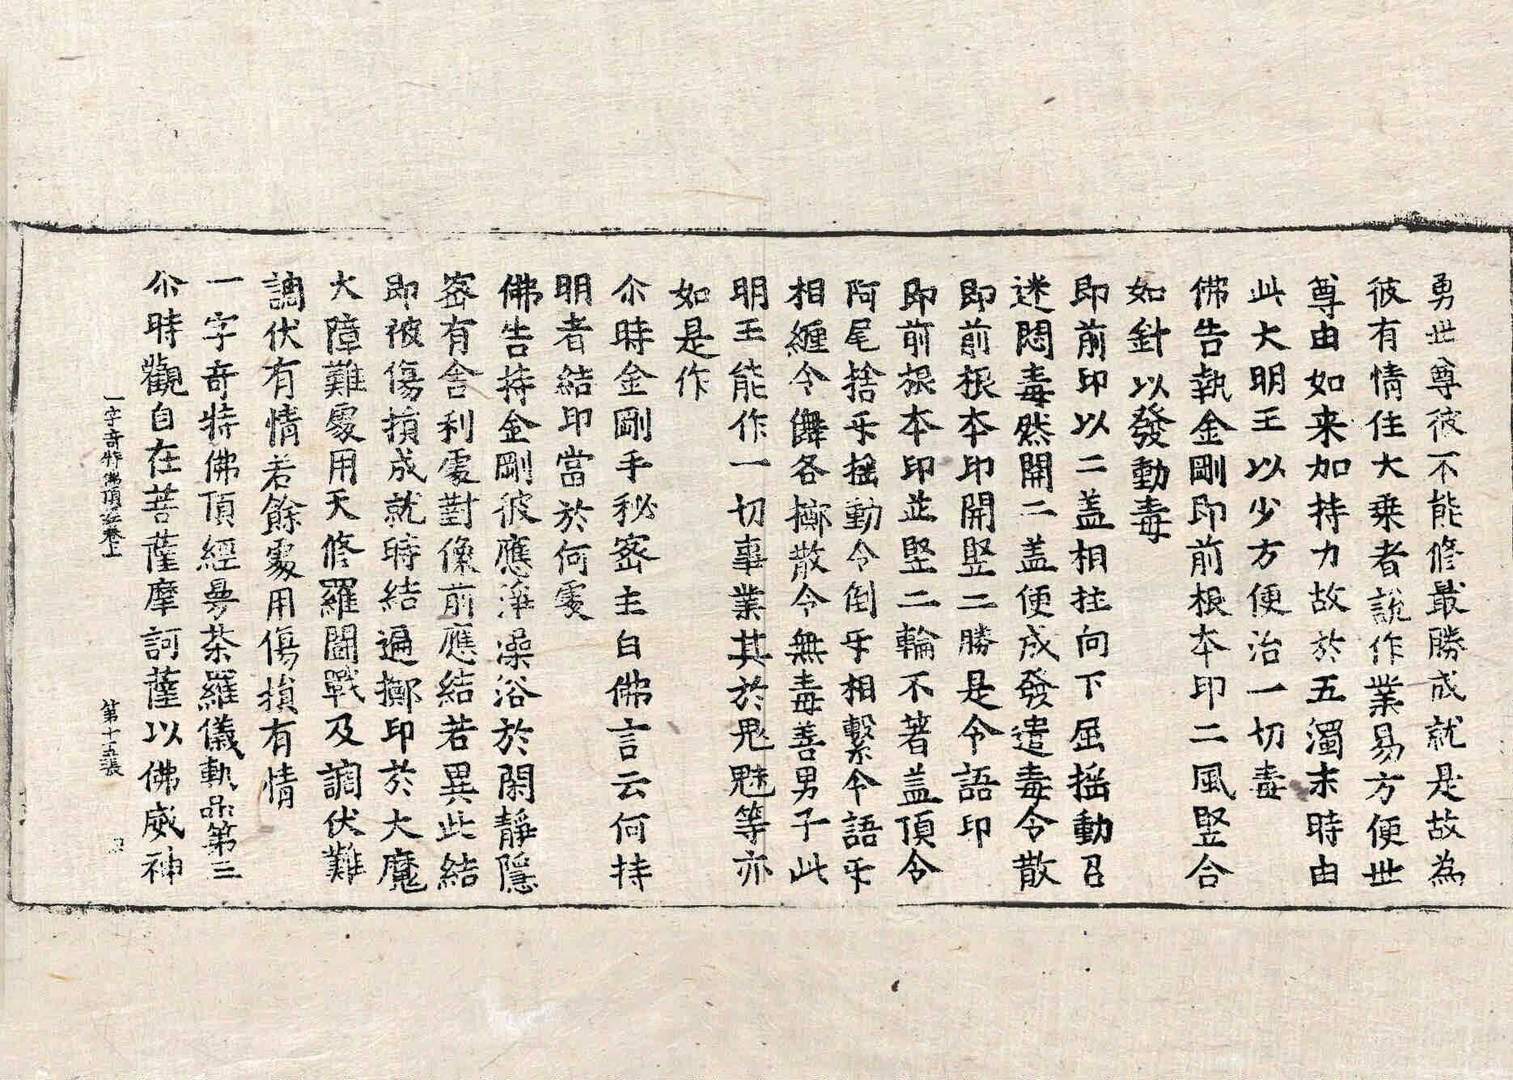 勇世尊彼不能修最勝成就是故為
彼有情住大乗者說作業易方便世
尊由如来加持力故於五濁末時由
此大明王以少方便治一切毒
佛告執金剛即前根本印二風竪合
如針以發動毒
即前印以二盖相拄向下屈揺動召
迷悶毒然開二盖便成發遣毒令散
即前根本印開竪二勝是令語印
即前根本印並竪二輪不著盖頂令
阿尾捨乎揺動令倒乎相繫令語乎
相纏令儛各擲散令無毒善男子此
明王能作一切事業其於鬼魅等亦
如是作
尒時金剛手秘密主白佛言云何持
明者結印當於何處
佛告持金剛彼應淨澡浴於閑靜隱
密有舍利處對像前應結若異此結
即被傷損成就時結遍擲印於大魔
大障難處用天修羅鬪戰及調伏難
調伏有情若餘處用傷損有情
一字奇特佛頂經曼荼羅儀軌品第三
尒時觀自在菩薩摩訶薩以佛威神
一字奇特佛頂經卷上 第十五張